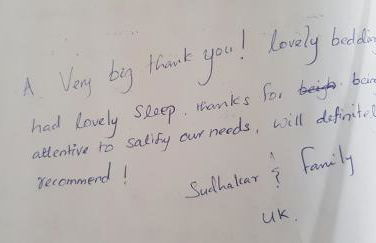 A Very big thank you! lovely bedding
had lovely sleep. thanks for
attentive to satisfy our needs, will
recommend!
Sudhakar & Family
UK.